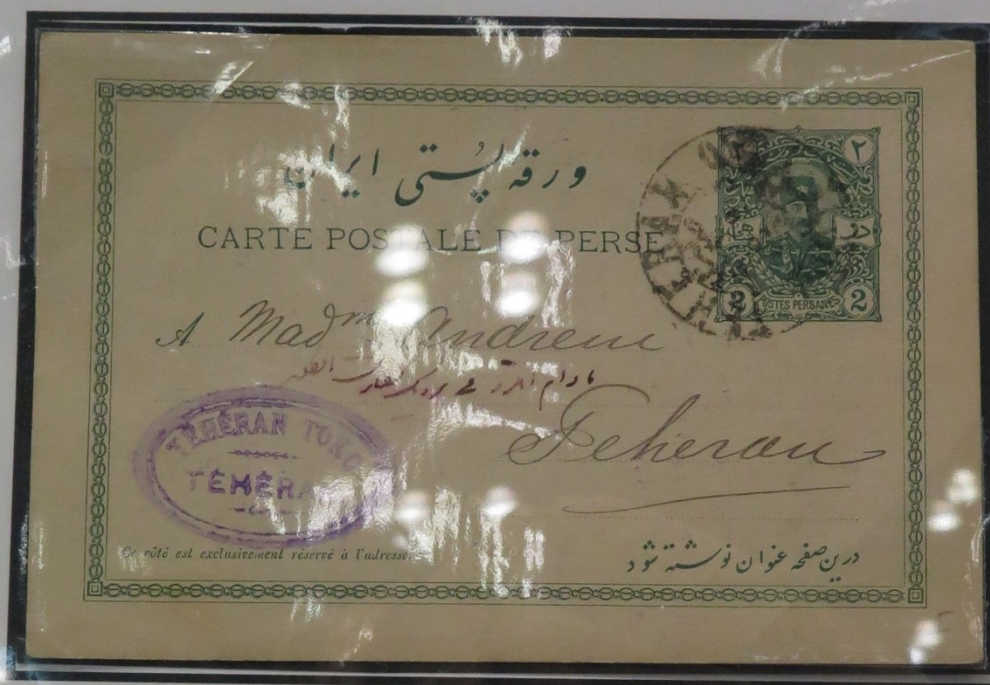 ورقه پُستی ایران
CARTE POSTALE DE PERSE
۲
دو
POSTES PERSANES
2 2
TEHERAN
A Mad^me Andreeux
مادام
Teheran
TÉHÉRAN TOKO
TÉHÉRAN
Ce côté est exclusivement réservé à l'adresse.
درین صفحه عنوان نوشته شود